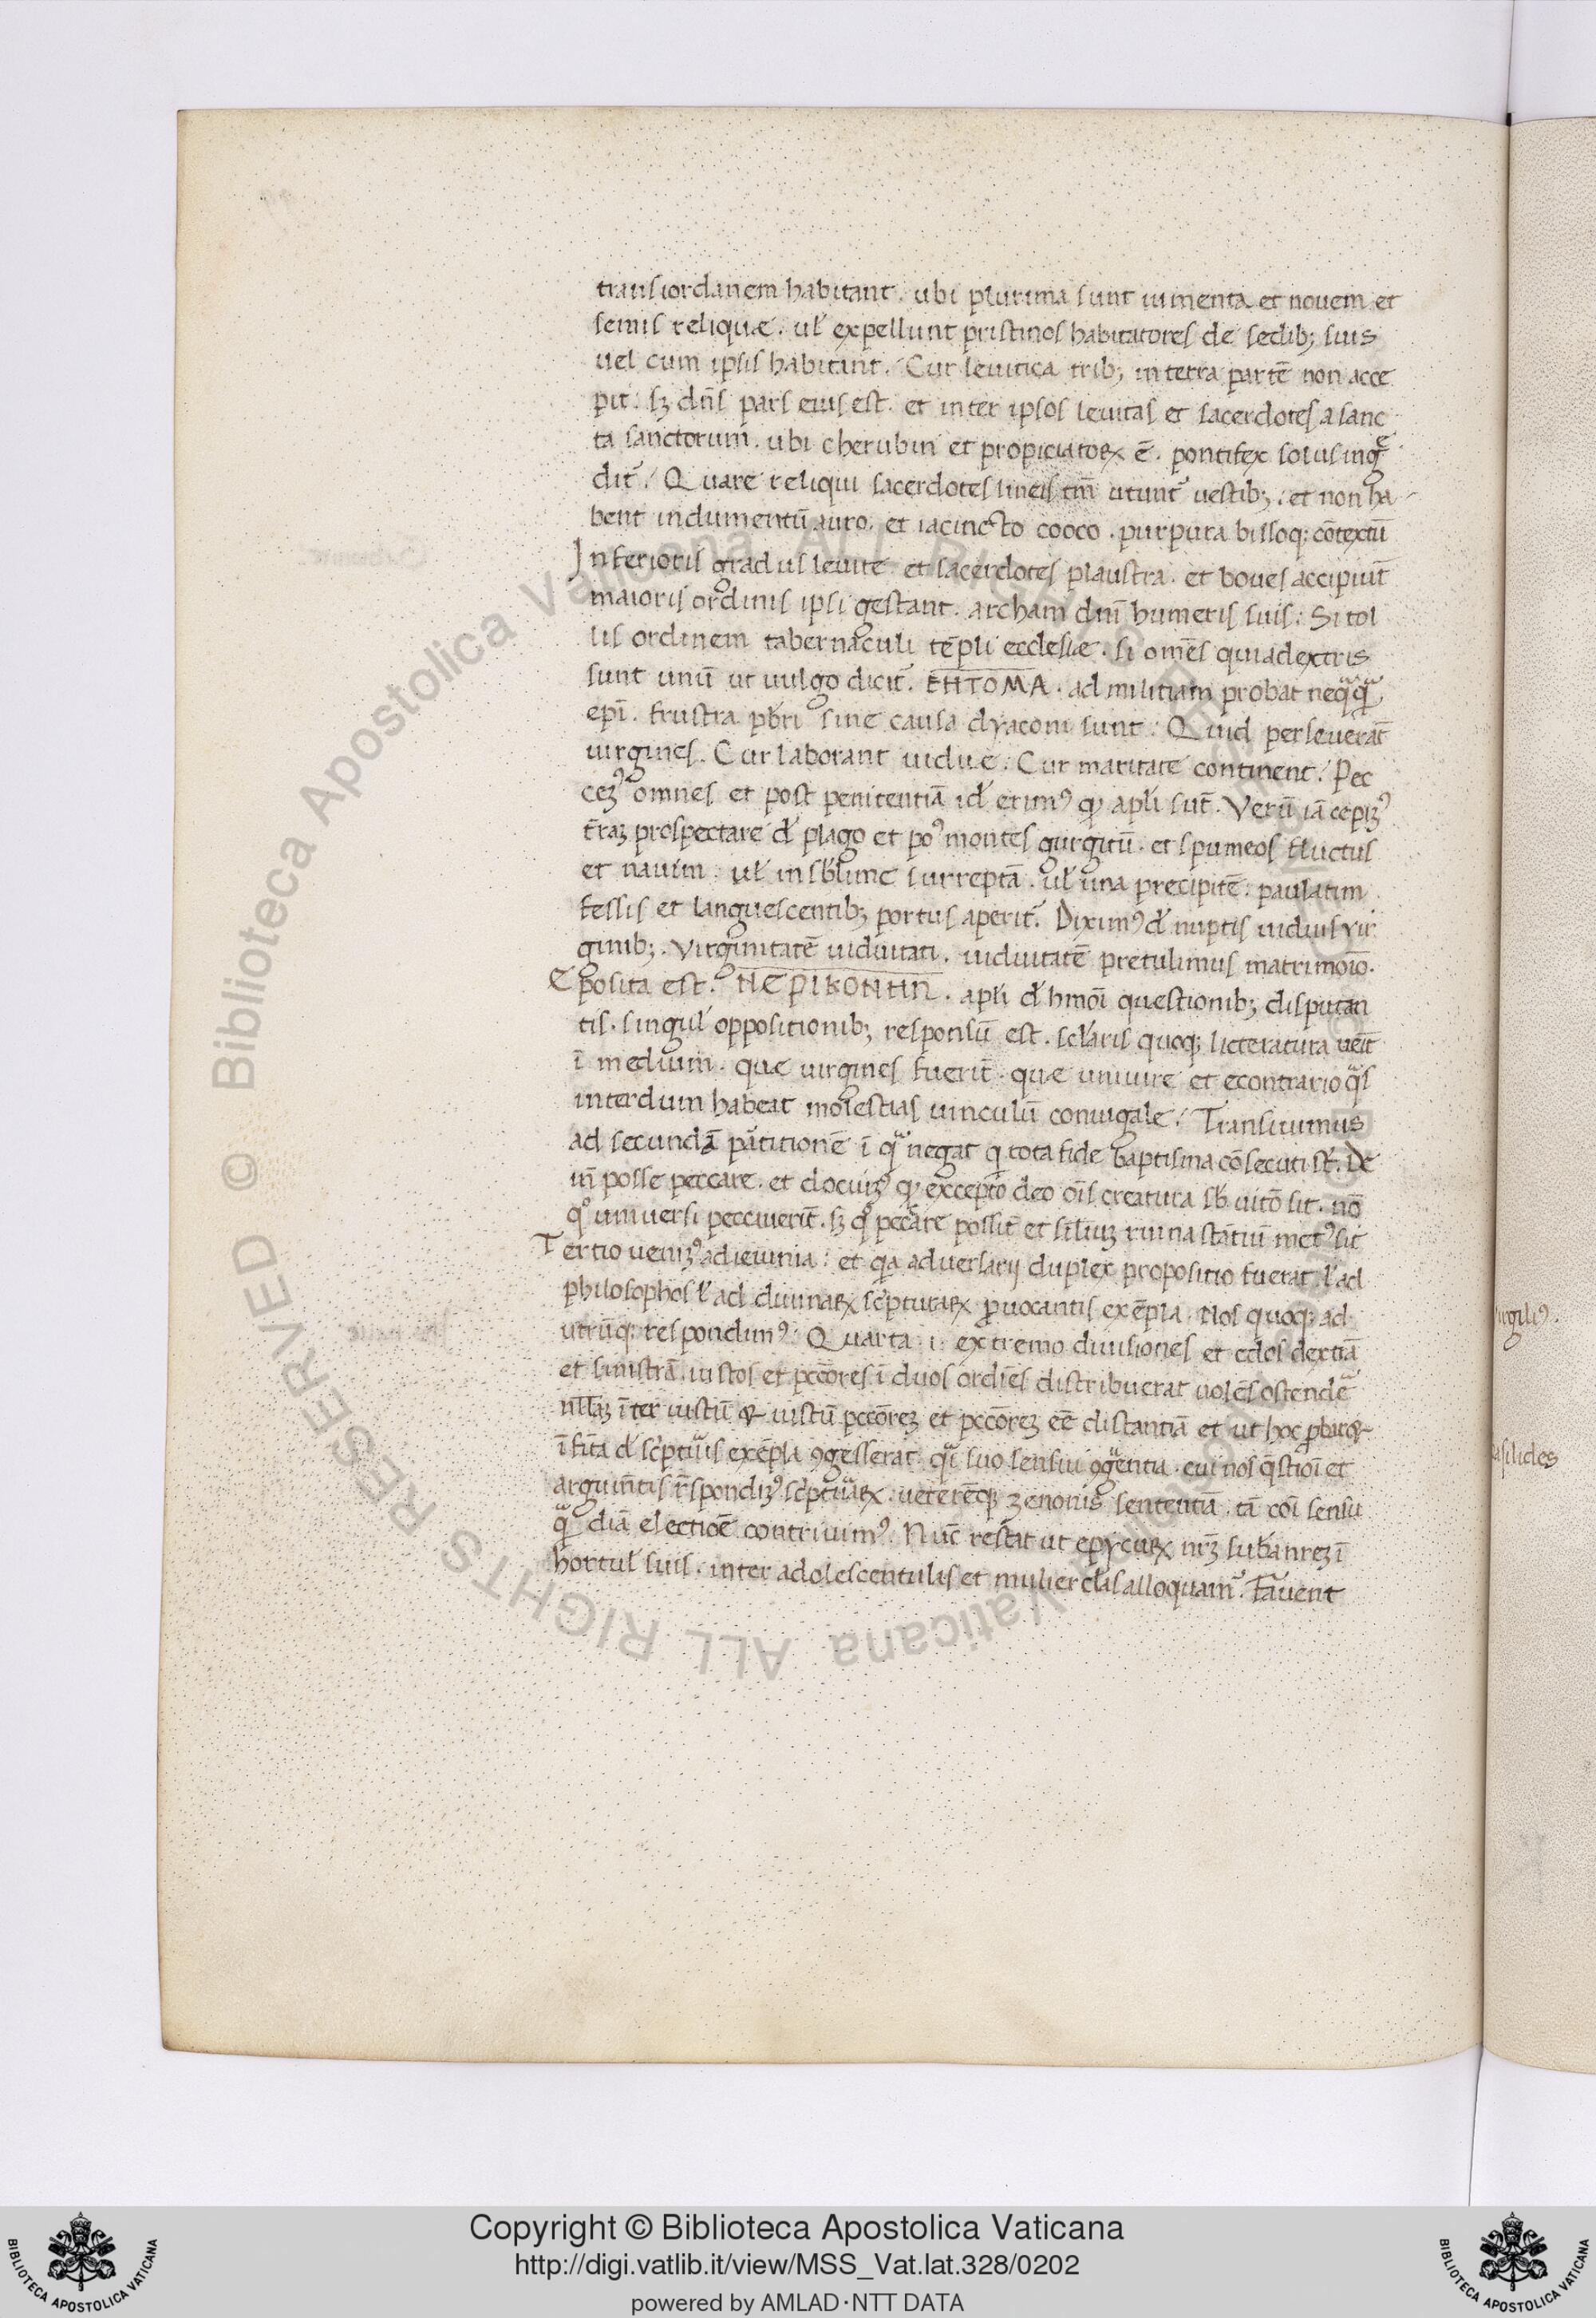 transiordanem habitant. ubi plurima sunt iumenta et nouem et
semis reliquæ. ul̃ expellunt pristinos habitatores de sedib; suis
uel cum ipsis habitant. Cur leuitica trib; in terra partē non acce
pit. sꝫ dñs pars eius est. et inter ipsos leuitas et sacerdotes a sanc
ta sanctorum. ubi cherubin et propiciatoꝝ ē. pontifex solus ing
dit. Quare reliqui sacerdotes lineis tm̄ utunt᷑ uestib;. et non ha
bent indumentū auro. et iacincto cooco. purpura bissoq; cōtextū
Inferioris gradus leuite et sacerdotes plaustra. et boues accipiūt
maioris ordinis ipsi gestant. archam dñi humeris suis. Si tol
lis ordinem tabernaculi tēpli ecclesiæ. si om̄es qui ad extris
sunt unū ut uulgo dicit᷑. ЄΗΤΟΜΑ. ad militiam probat neqͣqͣ
epī. frustra pb̄ri sine causa dyaconi sunt. Quid perseuerāt
uirgines. Cur laborant uidue. Cur maritate continent. Pec
cemꝰ omnes et post penitentiā id̄ erimꝰ qđ apl̄i sūt. Verū iā cepimꝰ
t̄raꝫ prospectare de plago et poꝰ montes gurgitū. et spumeos fluctus
et nauim. ul̃ in sb̄lime surreptā. ul̃ ima precipitē. paulatim
fessis et languescentib; portus aperit᷑. Diximꝰ de nuptis uiduis vir
ginib;. Virginitatē uiduitati. uiduitatē pretulimus matrimoīo.
Eposita est. ΠЄΡΙΚΟΠΗΝ. apl̄i de hmōi questionib; disputan
tis. singul̃ oppositionib; responsū est. scl̄aris quoq; licteratura uēit
ī medium. quæ uirgines fuerīt. quæ uniuire et econtrario qͣs
interdum habeat molestias uinculū coniugale. Transiuimus
ad secundā partitionē ī qͣ negat qͥ tota fide baptisma cōsecuti st̄. De
in̄ posse peccare. et docuimꝰ qđ excepto deo oīs creatura sb̄ uitō sit. nō
qͦ uniuersi peccuerīt. sꝫ qͦ peccare possīt et similiuꝫ ruina stātiū metꝰ sit
Tertio uenimꝰ ad ieiunia. et qͥa aduersarij duplex propositio fuerat l̃ ad
philosophos l̃ ad diuinaꝝ sc̄pturaꝝ ꝓuocantis exēpla. Nos quoq; ad
utrūq; respondimꝰ. Quarta .i. extremo diuisiones et edos dextrā
et sinistrā. iustos et pcc̄ores ī duos ordīes distribuerat uolēs ostendē
nll̄aꝫ īter iustū et iustū pcc̄oreꝫ et pcc̄oreꝫ eē distantiā et ut hoc ꝓbaret
īfīta de sc̄ptuͣis exēpla ꝯgesserat qͣi suo sensui ꝯgͣentia. cui nos qͣstioī et
arguīntis r̄spondimꝰ sc̄ptuͣaꝝ. ueterēqꝫ zenonis sententiā. tā coī sensu
qͣ diā electioē contriuimꝰ. Nūc restat ut epycuꝝ nr̄ꝫ sub̄anreꝫ ī
hortul̃ suis. inter adolescentulas et muliercl̄as alloquam᷑. fauent
irgiliꝰ.
asilides
Copyright © Biblioteca Apostolica Vaticana
http://digi.vatlib.it/view/MSS_Vat.lat.328/0202
powered by AMLAD·NTT DATA
BIBLIOTECA APOSTOLICA VATICANA
BIBLIOTECA APOSTOLICA VATICANA